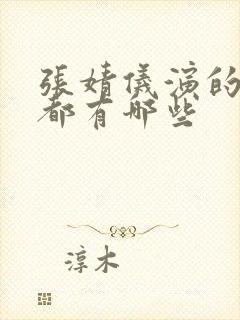 張婧儀演的
都有哪些
淳木